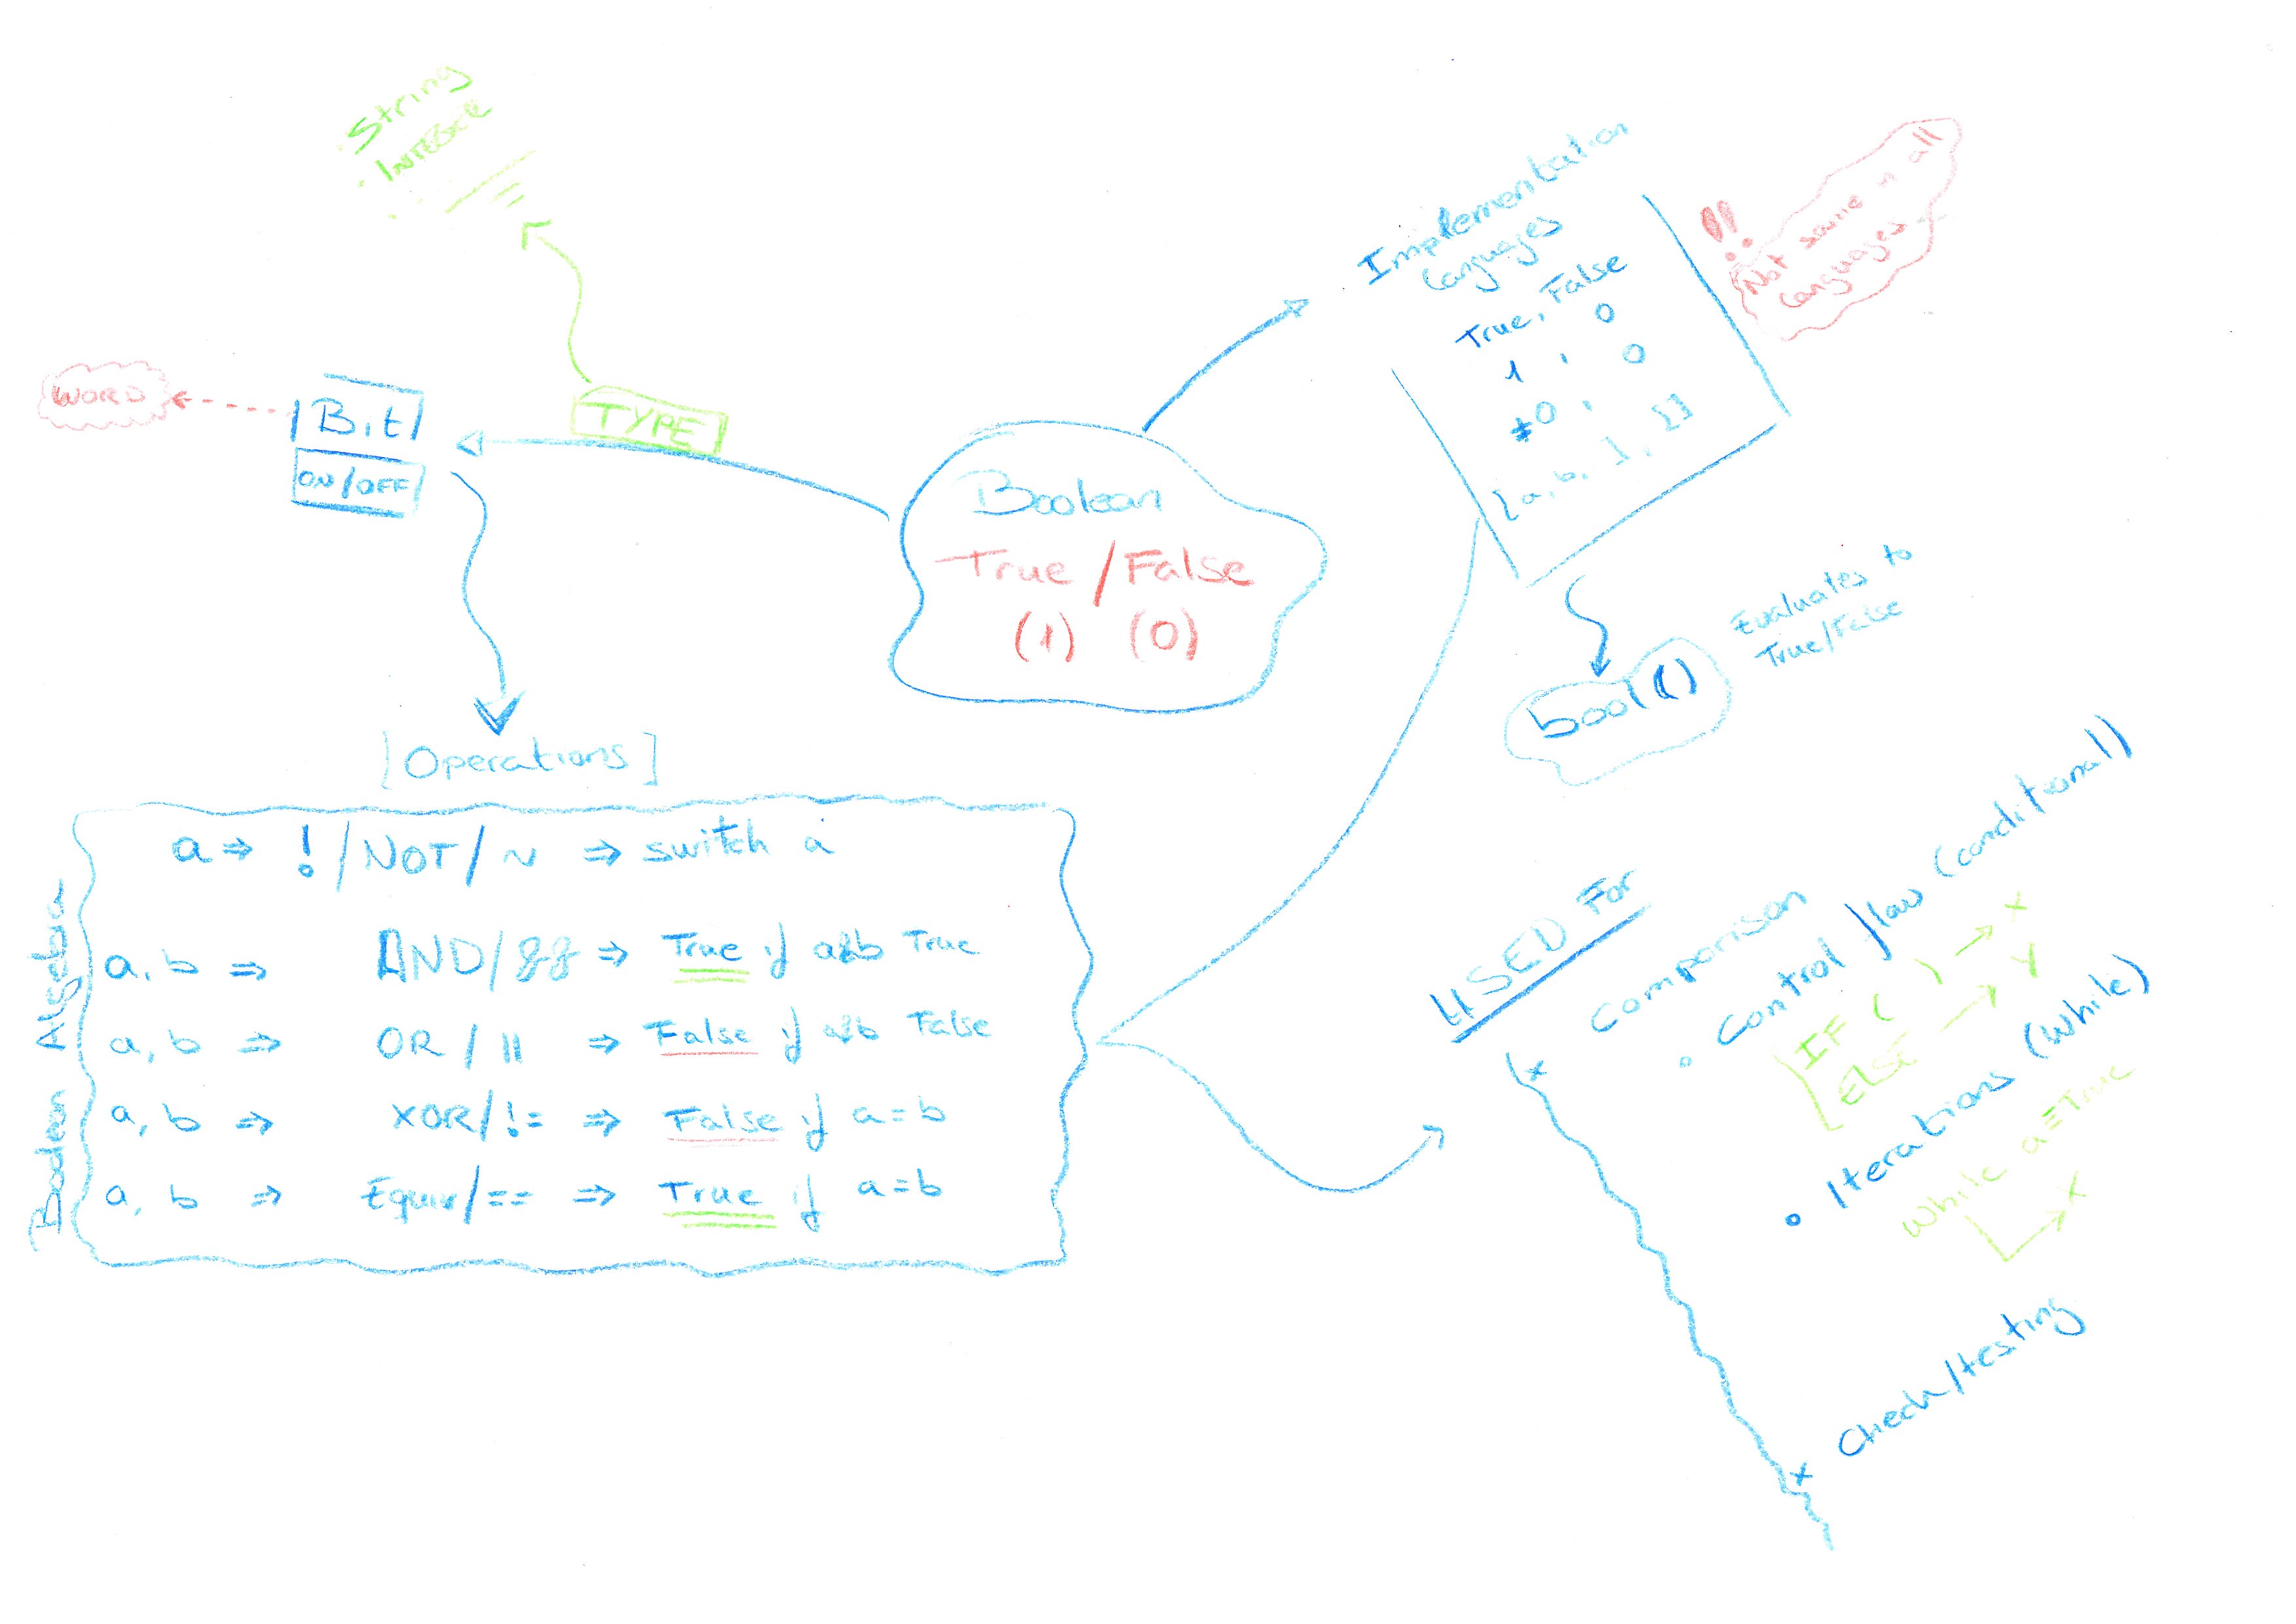 String
INTEGER
TYPE
WORD
Bit
ON/OFF
Boolean
True/False
(1) (0)
Implementation
Languages
True, False
1 , 0
≠0 , 0
[a, b, ], []
!!
Not same in all
Languages
bool()
Evaluates to
True/False
[Operations]
Boolean Algebra
a ⇒ !/NOT/~ ⇒ switch a
a, b ⇒ AND/&& ⇒ True if a&b True
a, b ⇒ OR/|| ⇒ False if a&b False
a, b ⇒ XOR/!= ⇒ False if a=b
a, b ⇒ Equiv/== ⇒ True if a=b
USED For
x Comparison
• Control flow (conditional)
IF ( ) → x
ELSE → y
• Iterations (while)
While a=True
x
x Check/testing